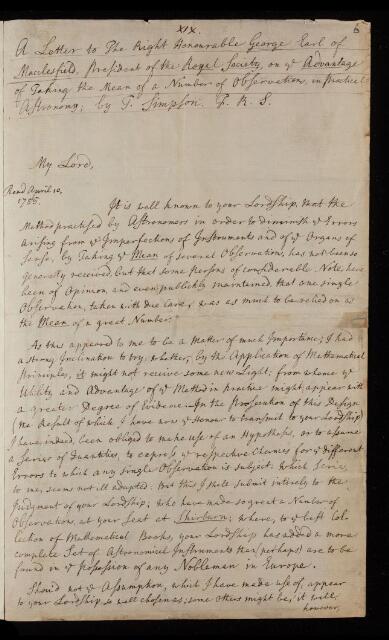 XIX.
6
A Letter to The Right Honourable George Earl of
Macclesfield, President of the Royal Society, on ye Advantage
of Taking the Mean of a Number of Observations, in practical
Astronomy; by T. Simpson F. R. S.
My Lord,
Read April 10,
1755.
It is well known to your Lordship, that the
Method practised by Astronomers in order to diminish ye Errors
arising from ye Imperfections of Instruments and of ye Organs of
Sense, by Taking ye Mean of several Observations, has not been so
generally received, but that some Persons of considerable Note have
been of Opinion, and even publickly maintained that one single
Observation, taken with due Care, was as much to be relied on as
the Mean of a great Number.
As this appeared to me to be a Matter of much Importance; I had
a strong Inclination to try, whether, by the Application of Mathematical
Principles, it might not receive some new Light; from whence ye
Utility and Advantage of ye Method in practice might appear with
a greater Degree of Evidence. In the Prosecution of this Design
(the Result of which I have now ye Honour to transmit to your Lordship)
I have, indeed, been obliged to make use of an Hypothesis, or to assume
a Series of Quantities, to express ye respective Chances for ye different
Errors to which any single Observation is subject. Which Series,
to me, seems not ill adapted. But this I shall submit intirely to the
Judgment of your Lordship; who have made so great a Number of
Observations at your Seat at Shirburn; where, to ye best Col-
lection of Mathematical Books, your Lordship has added a more
complete Set of Astronomical Instruments than (perhaps) are to be
found in ye Possession of any Nobleman in Europe.
Should not ye Assumption, which I have made use of, appear
to your Lordship so well chosen as some others might be; it will,
however,